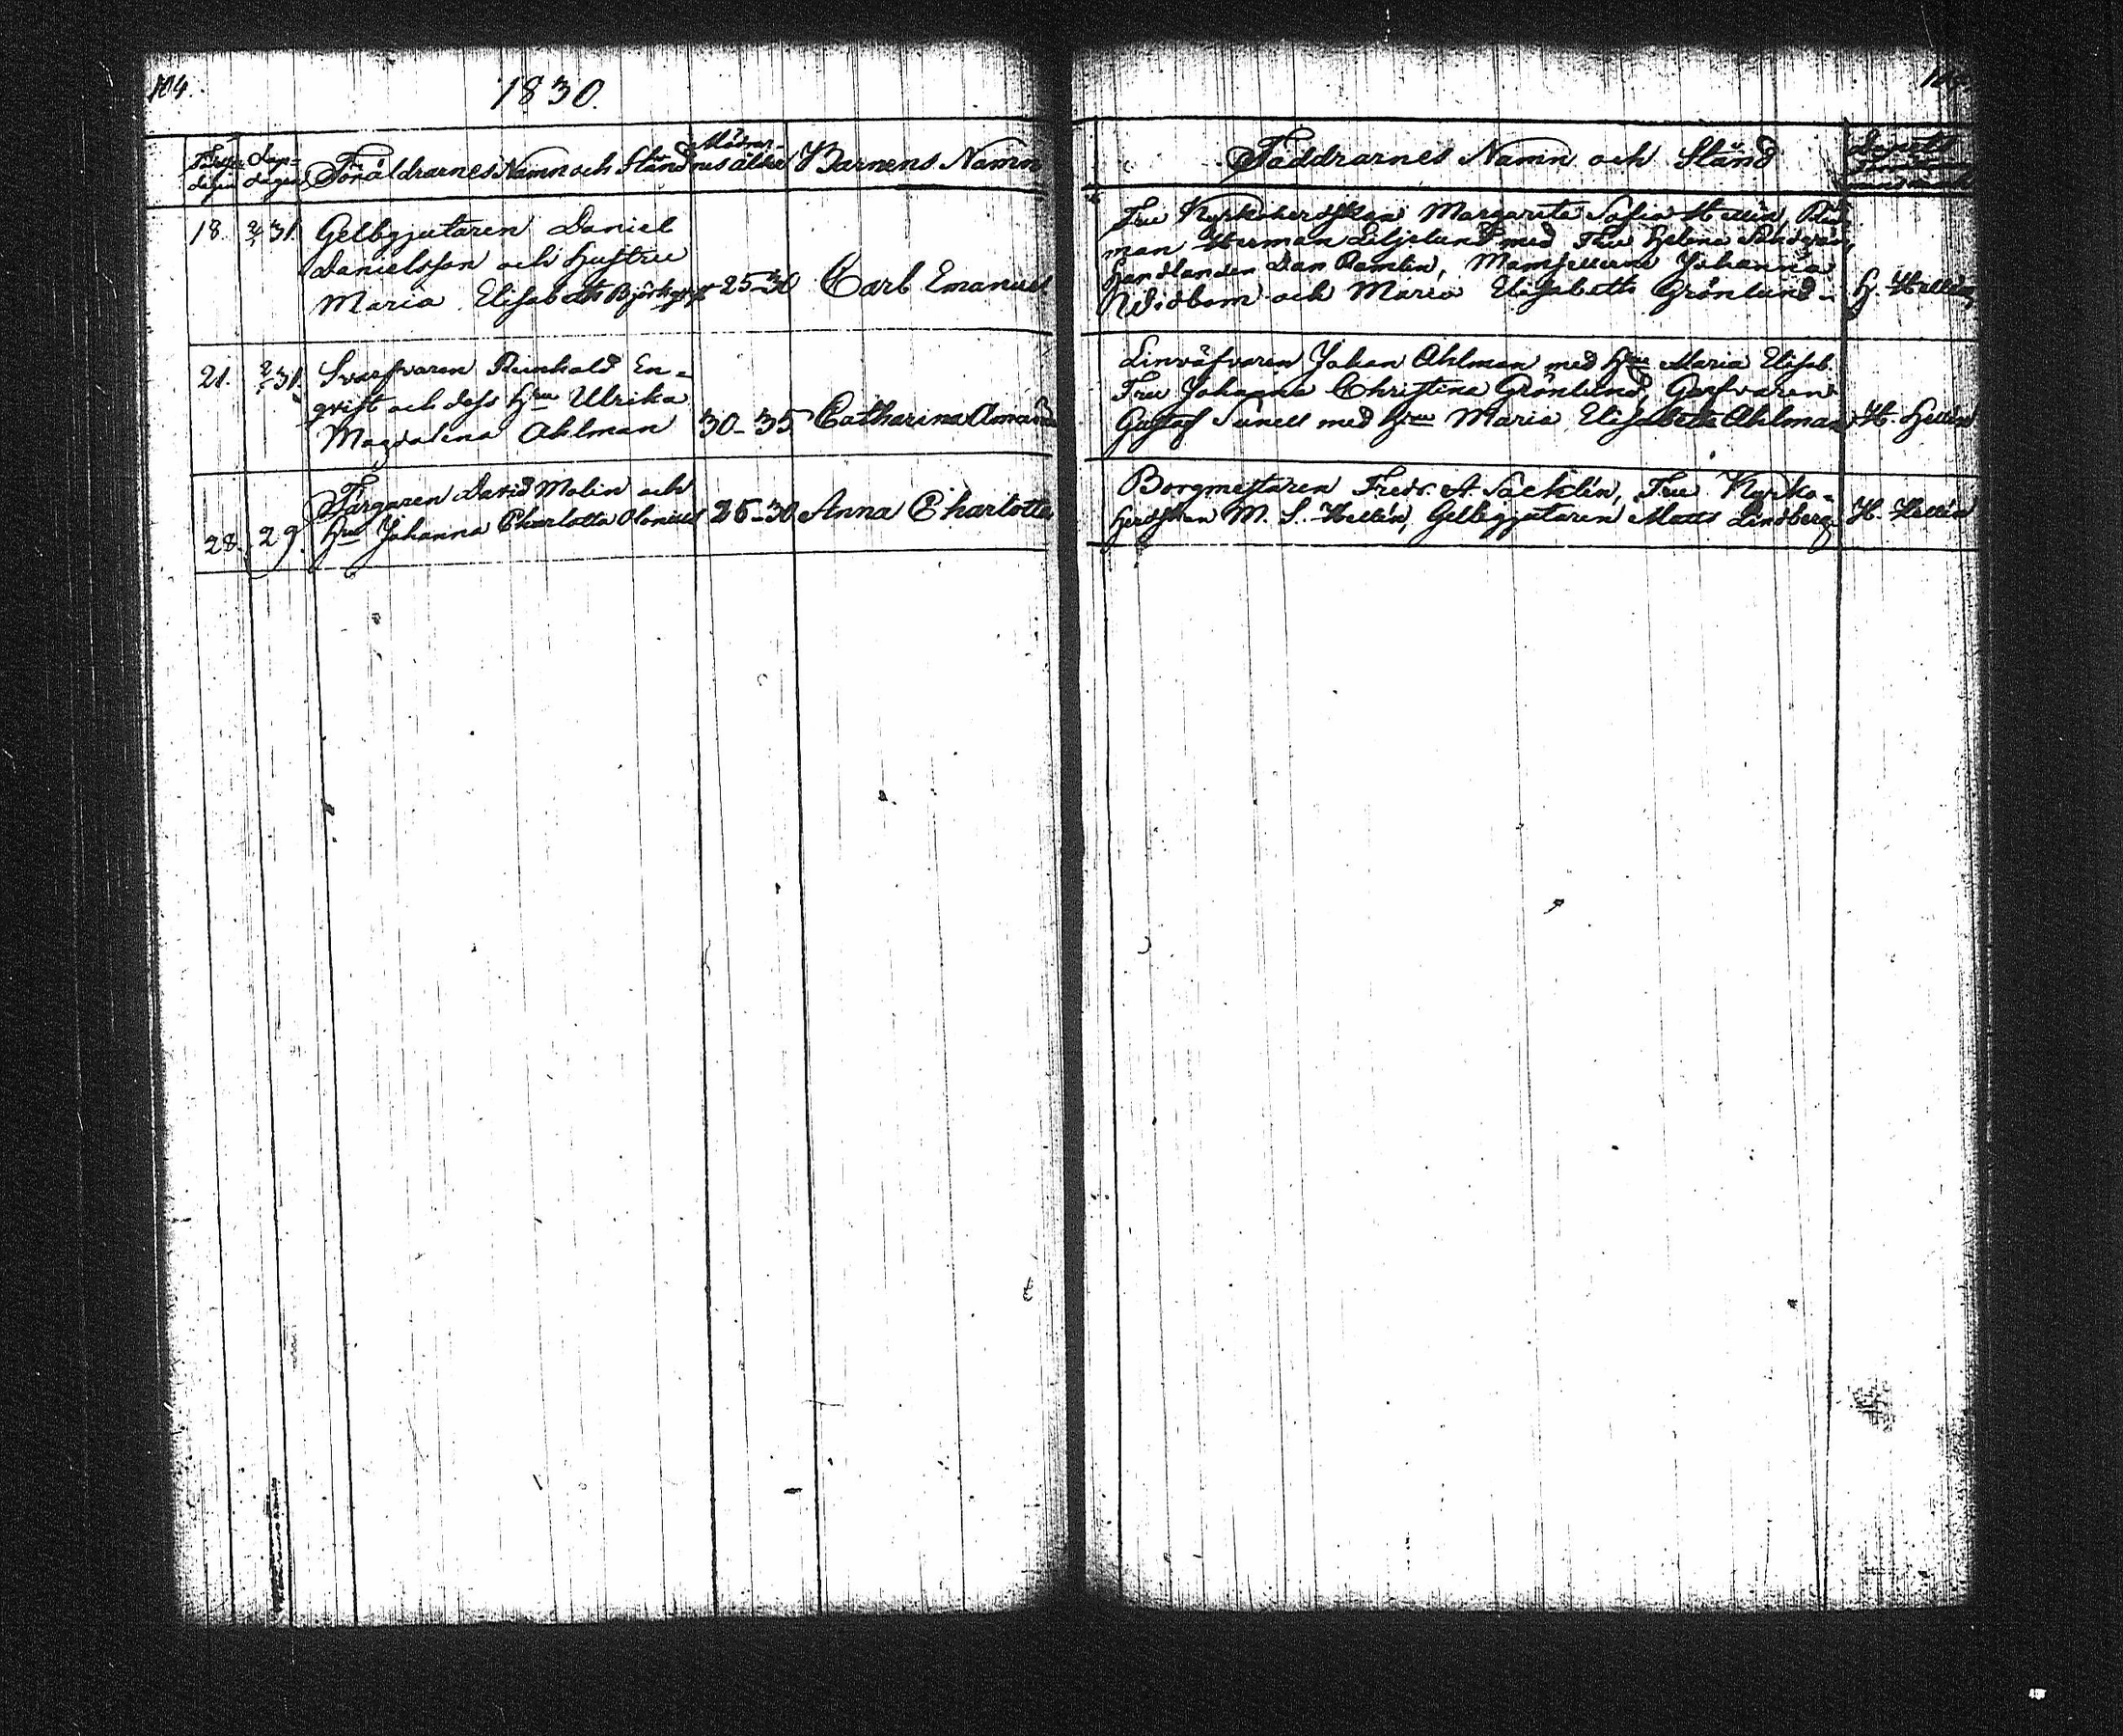 104.
1830.
Föräldrarnes Namn och Stånd
Barnens Namn
18. 31.
Gelbgjutaren Daniel
Danielsson och Hustru
Maria Elisabeth Björkqvist 25-30 Carl Emanuel
21. 31.
Svarfvaren Reinhold En-
qvist och dess Hru Ulrika
Magdalena Ahlman 30-35 Catharina Amanda
Färgaren David Malin och
28. 29. Hru Johanna Charlotta 26-30 Anna Charlotta
Faddrarnes Namn och Stånd
Fru Kyrkoherdskan Margareta Sofia Hellén,
man Herman Liljelund med Fru Helena
Handlanden Dan Ramlin, Mamsellerne Johanna
Widbom och Maria Elisabeth Grönlund. H. Hellén
Linväfvaren Johan Ahlman med Hru Maria Elisab.
Fru Johanna Christina Grönlund, Garfvaren
Gustaf Sunell med Hru Maria Elisabeth Ahlman H. Hellén
Borgmestaren Fredr. A. Sacklén, Fru Kyrko-
herdskan M. S. Hellén, Gelbgjutaren Matts Lindberg. H. Hellén